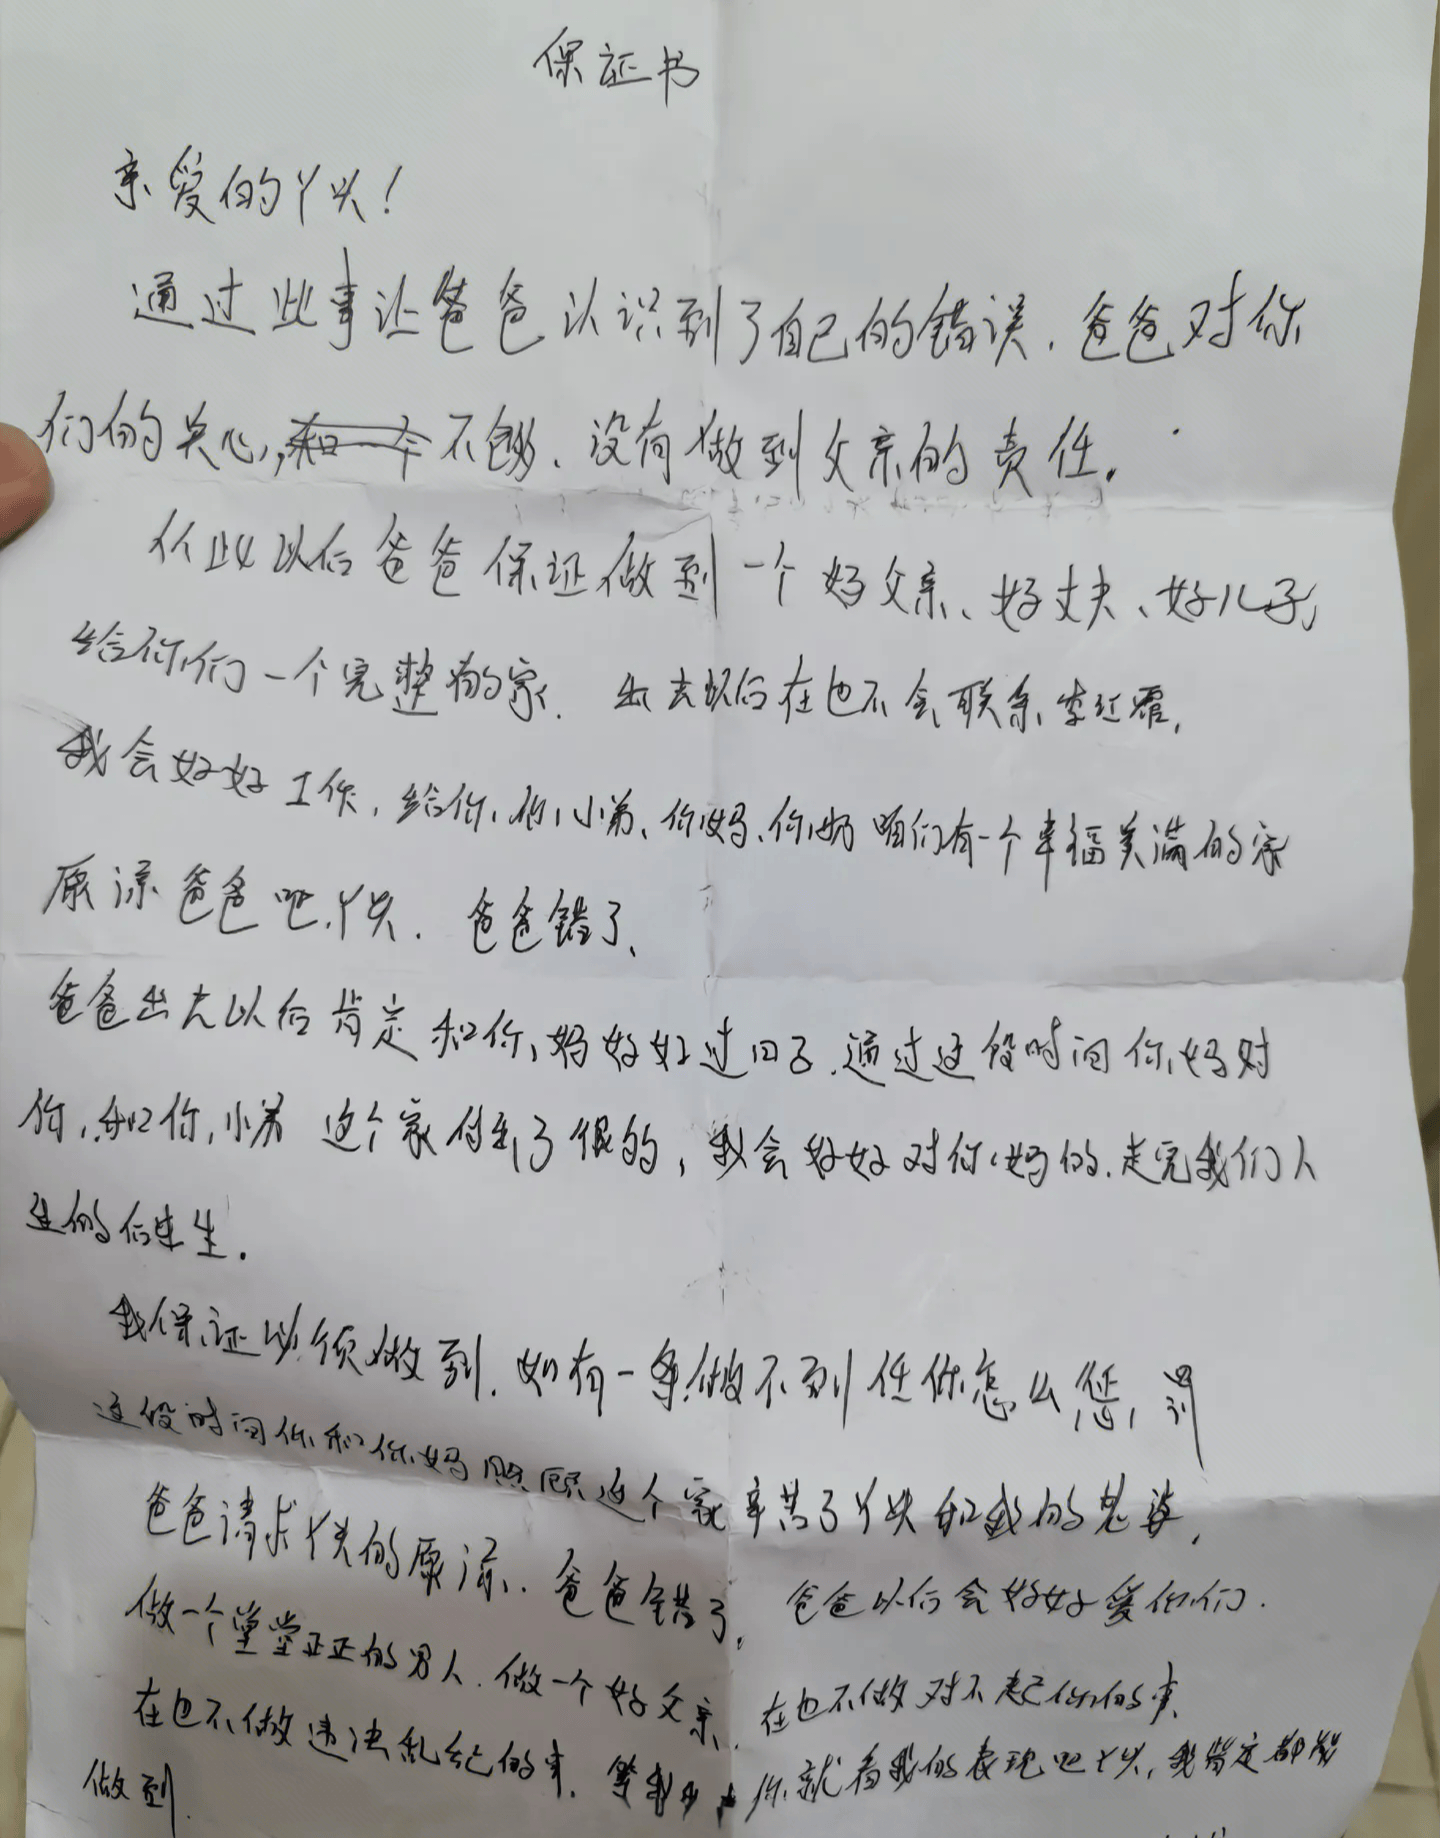 保证书
亲爱的丫头!
通过此事让爸爸认识到了自己的错误.爸爸对你
们的关心,不够、没有做到父亲的责任.
从此以后爸爸保证做到一个好父亲、好丈夫、好儿子,
给你们一个完整的家.出去以后在也不会联系李红霜,
我会好好工作,给你,你小弟、你妈、你奶咱们有一个幸福美满的家
原谅爸爸吧.丫头.爸爸错了、
爸爸出去以后肯定和你妈好好过日子.通过这段时间你妈对
你,和你小弟 这个家付出了很的,我会好好对你妈的.走完我们人
生的后半生.
我保证必须做到.如有一条做不到任你怎么惩罚
这段时间你和你妈照顾这个家辛苦了丫头和我的老婆,
爸爸请求丫头的原谅.爸爸错了.爸爸以后会好好爱你们.
做一个堂堂正正的男人.做一个好父亲.在也不做对不起你们的事.
在也不做违法乱纪的事.等我 你就看我的表现吧丫头,我肯定都能
做到.